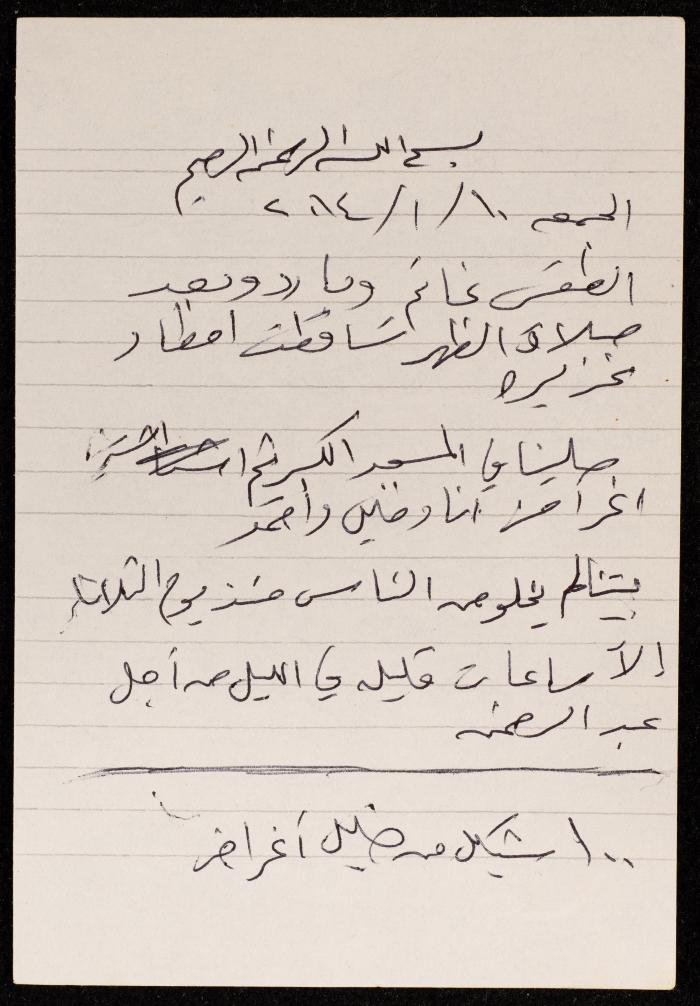 بسم الله الرحمن الرحيم
الجمعه ١٠/١/٢٠١٤
الطقس غائم وبارد وبعد
صلاة الظهر تساقطت امطار
غزيره
صلينا في المسجد الكبير ثم اشترينا
اغراض انا وخليل وأحمد
بيتنا لم يخلو من الناس منذ يوم الثلاثاء
إلا ساعات قليله في الليل من أجل
عبد الرحمن
١٠٠ شيكل من خليل أغراض